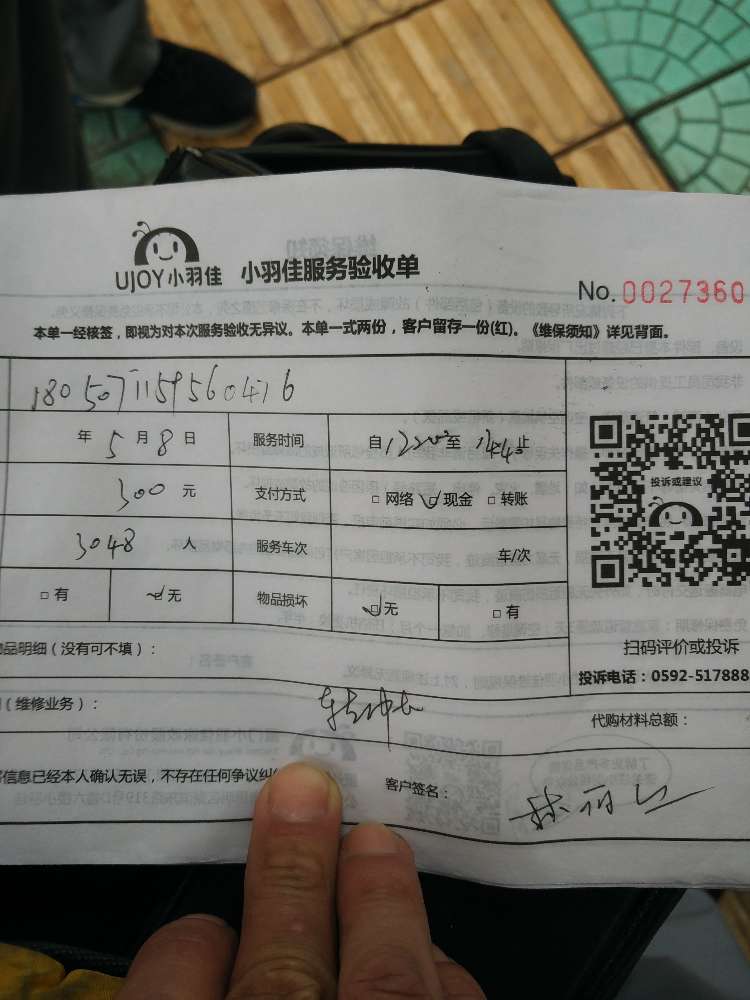 UJOY小羽佳 小羽佳服务验收单
No.0027360
本单一经核签,即视为对本次服务验收无异议。本单一式两份,客户留存一份(红)。《维保须知》详见背面。
180507115956041 6
年 5 月 8 日 服务时间 自 至 止
300 元 支付方式 □ 网络 现金 □ 转账
3048 人 服务车次 车/次
□ 有 无 物品损坏 □ 无 □ 有
投诉或建议
品明细(没有可不填):
扫码评价或投诉
投诉电话:0592-517888
(维修业务):
代购材料总额:
信息已经本人确认无误,不存在任何争议纠
客户签名: